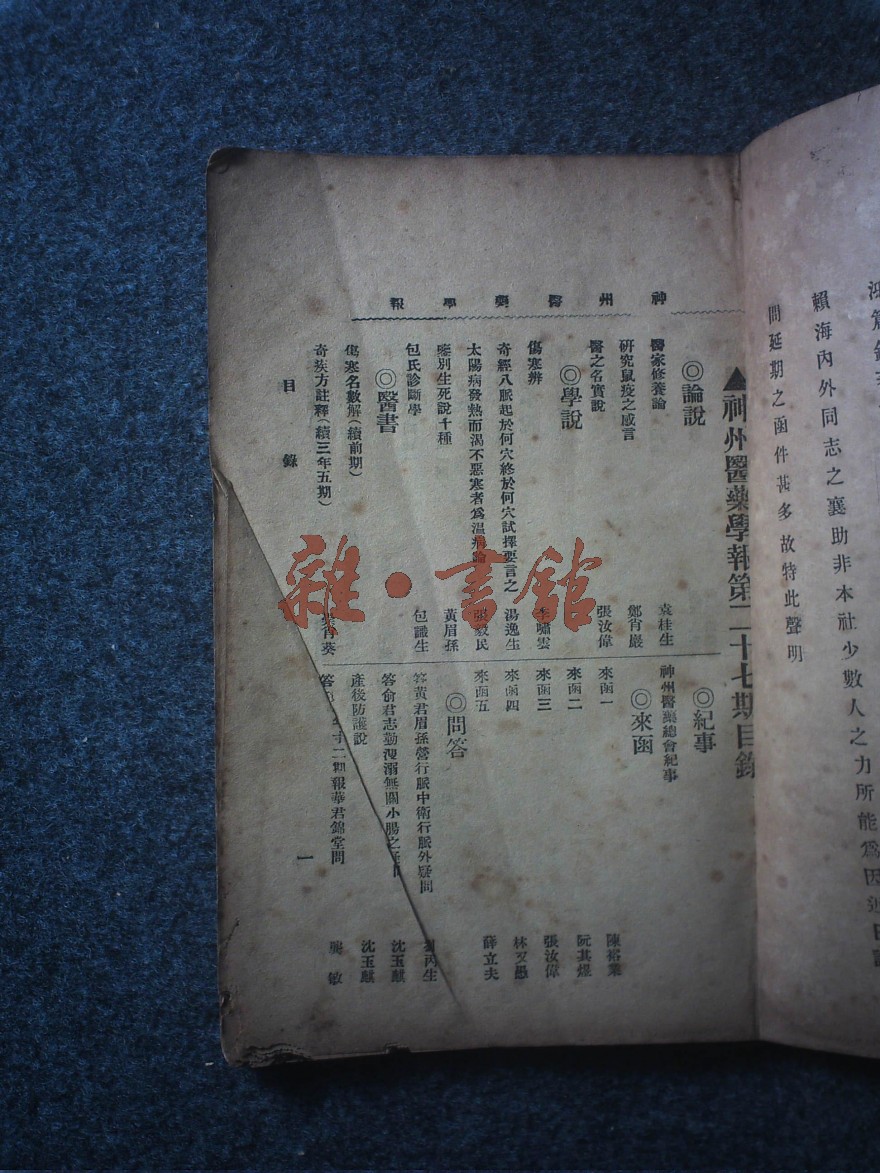 鴻篇鉅
賴海內外同志之襄助非本社少數人之力所能爲因近日
問延期之函件甚多故特此聲明
神州醫藥學報
▲神州醫藥學報第二十七期目錄
◎論說
醫家修養論 袁桂生
研究鼠疫之感言 鄭肖巖
醫之名實說 張汝偉
◎學說
傷寒辨 李嘯雲
奇經八脈起於何穴終於何穴試擇要言之 湯逸生
太陽病發熱而渴不惡寒者爲溫病論 張毅民
鑒別生死說十種 黃眉孫
包氏診斷學 包識生
◎醫書
傷寒名數解(續前期)
奇疾方註釋(續三年五期) 肖葵
◎紀事
神州醫藥總會紀事
◎來函
來函一 陳裕業
來函二 阮其煜
來函三 張汝偉
來函四 林又愚
來函五 薛立夫
◎問答
答黃君眉孫營行脈中衛行脈外疑問 丙生
答俞君志勤溲溺無關小腸之 沈玉麒
產後防護說 沈玉麒
答 年廿二期報華君錦堂問 龔敏
目錄
一
雜·書館